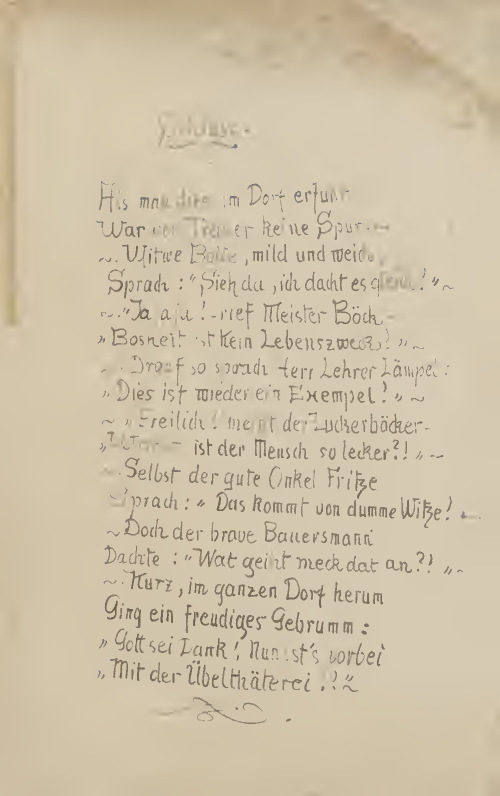 Schluss.
Als man dies im Dorf erfuhr
War von Trauer keine Spur. —
~. Witwe Bolte, mild und weich,
Sprach : "Sieh da , ich dacht es gleich!" ~
~. "Ja aja ! - rief Meister Böck -
"Bosheit ist kein Lebenszweck! " ~
Drauf so sprach Herr Lehrer Lämpel :
"Dies ist wieder ein Exempel ! " ~
~ "Freilich! meint der Zuckerbäcker-
" — ist der Mensch so lecker?! " ~
~. Selbst der gute Onkel Fritze
Sprach : " Das kommt von dumme Witze! "
~ Doch der brave Bauersmann
Dachte : "Wat geiht meck dat an?! " ~
~. Kurz, im ganzen Dorf herum
Ging ein freudiges Gebrumm :
"Gott sei Dank! Nun ist's vorbei
"Mit der Übelthäterei !!" ~